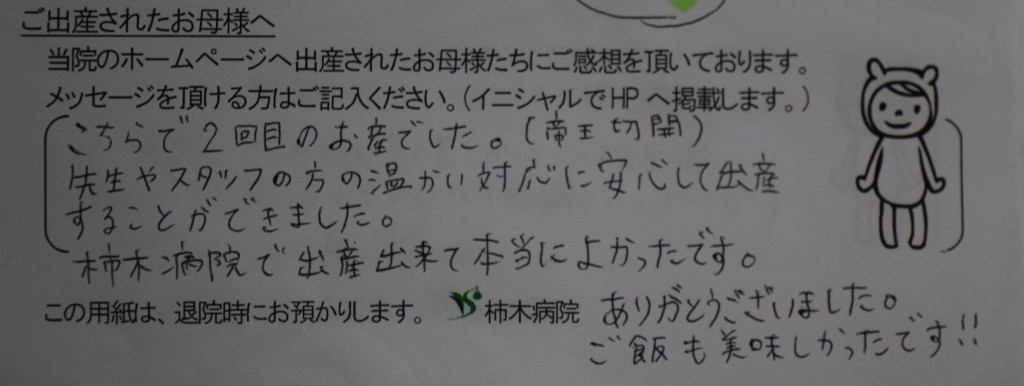 ご出産されたお母様へ
当院のホームページへ出産されたお母様たちにご感想を頂いております。
メッセージを頂ける方はご記入ください。(イニシャルでHPへ掲載します。)
こちらで2回目のお産でした。(帝王切開)
先生やスタッフの方の温かい対応に安心して出産
することができました。
柿木病院で出産出来て本当によかったです。
この用紙は、退院時にお預かりします。 柿木病院
ありがとうございました。
ご飯も美味しかったです!!